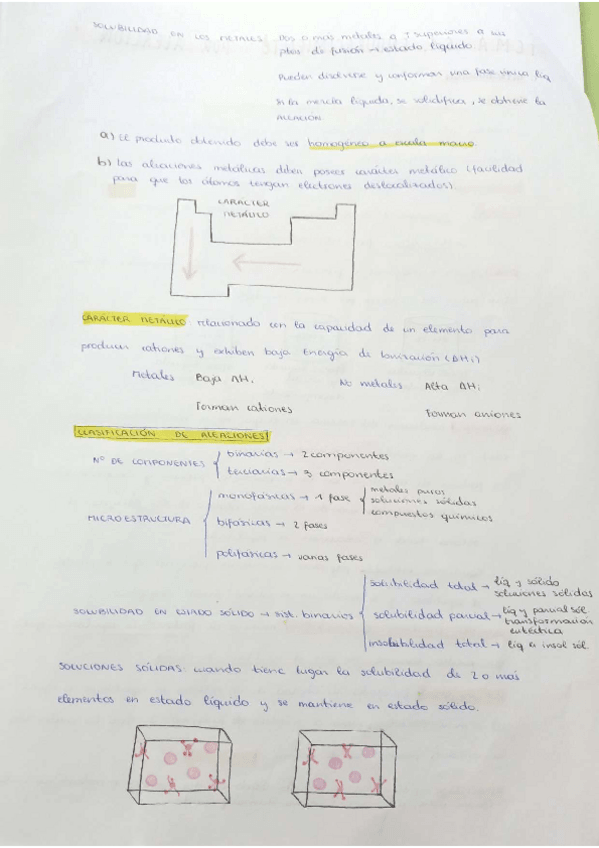 SOLUBILIDAD EN LOS METALES: Dos o más metales a T superiores a sus
ptos de fusión → estado líquido
Pueden disolverse y conformar una fase única líq
Si la mezcla líquida, se solidifica, se obtiene la
ALEACIÓN
a) El producto obtenido debe ser homogéneo a escala macro.
b) Las aleaciones metálicas deben poseer carácter metálico (facilidad
para que los átomos tengan electrones deslocalizados).
CARÁCTER
METÁLICO
CARÁCTER METÁLICO: relacionado con la capacidad de un elemento para
producir cationes y exhiben baja Energía de Ionización (ΔHi)
Metales Baja ΔHi No metales Alta ΔHi
Forman cationes Forman aniones
CLASIFICACIÓN DE ALEACIONES
Nº DE COMPONENTES
binarias → 2 componentes
terciarias → 3 componentes
MICROESTRUCTURA
monofásicas → 1 fase
metales puros
soluciones sólidas
compuestos químicos
bifásicas → 2 fases
polifásicas → varias fases
SOLUBILIDAD EN ESTADO SÓLIDO → sist. binarios
solubilidad total → líq y sólido
soluciones sólidas
solubilidad parcial → líq y parcial sól
transformación
eutéctica
insolubilidad total → líq e insol sól.
SOLUCIONES SÓLIDAS: cuando tiene lugar la solubilidad de 2 o más
elementos en estado líquido y se mantiene en estado sólido.